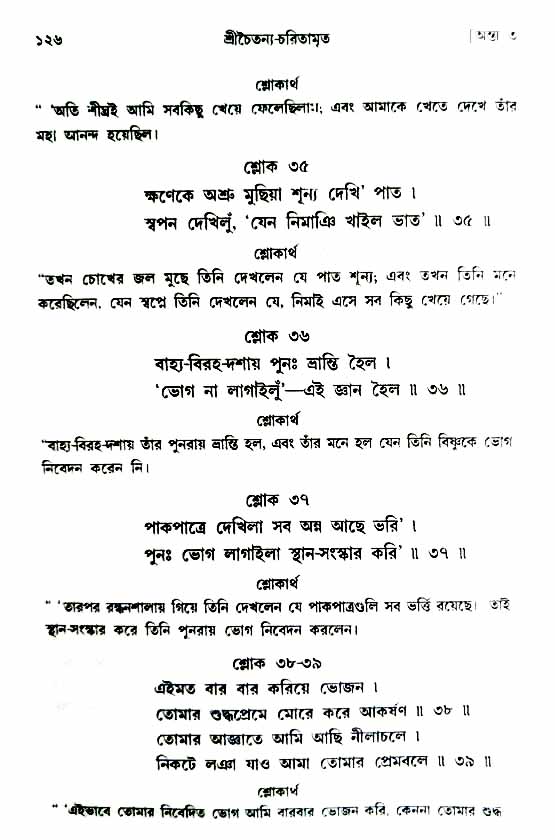 ১২৬ শ্রীচৈতন্য-চরিতামৃত [অন্ত্য ৩
শ্লোকার্থ
“ ‘অতি শীঘ্রই আমি সবকিছু খেয়ে ফেলেছিলাম; এবং আমাকে খেতে দেখে তাঁর
মহা আনন্দ হয়েছিল।
শ্লোক ৩৫
ক্ষণেকে অশ্রু মুছিয়া শূন্য দেখি’ পাত ।
স্বপন দেখিলুঁ, ‘যেন নিমাঞি খাইল ভাত’ ॥ ৩৫ ॥
শ্লোকার্থ
“তখন চোখের জল মুছে তিনি দেখলেন যে পাত শূন্য; এবং তখন তিনি মনে
করেছিলেন, যেন স্বপ্নে তিনি দেখলেন যে, নিমাই এসে সব কিছু খেয়ে গেছে।”
শ্লোক ৩৬
বাহ্য-বিরহ-দশায় পুনঃ ভ্রান্তি হৈল ।
‘ভোগ না লাগাইলুঁ’—এই জ্ঞান হৈল ॥ ৩৬ ॥
শ্লোকার্থ
“বাহ্য-বিরহ-দশায় তাঁর পুনরায় ভ্রান্তি হল, এবং তাঁর মনে হল যেন তিনি বিষ্ণুকে ভোগ
নিবেদন করেন নি।
শ্লোক ৩৭
পাকপাত্রে দেখিলা সব অন্ন আছে ভরি’ ।
পুনঃ ভোগ লাগাইলা স্থান-সংস্কার করি’ ॥ ৩৭ ॥
শ্লোকার্থ
“ ‘তারপর রন্ধনশালায় গিয়ে তিনি দেখলেন যে পাকপাত্রগুলি সব ভর্ত্তি রয়েছে। তাই
স্থান-সংস্কার করে তিনি পুনরায় ভোগ নিবেদন করলেন।
শ্লোক ৩৮-৩৯
এইমত বার বার করিয়ে ভোজন ।
তোমার শুদ্ধপ্রেমে মোরে করে আকর্ষণ ॥ ৩৮ ॥
তোমার আজ্ঞাতে আমি আছি নীলাচলে ।
নিকটে লঞা যাও আমা তোমার প্রেমবলে ॥ ৩৯ ॥
শ্লোকার্থ
“ ‘এইভাবে তোমার নিবেদিত ভোগ আমি বারবার ভোজন করি, কেননা তোমার শুদ্ধ